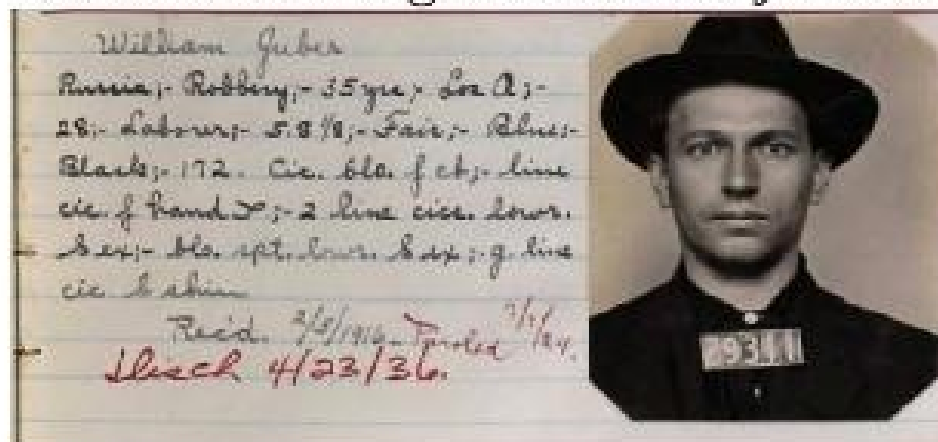 William Guber
Russia;- Robbery;- 35 yrs;- Los A;-
28;- Labourer;- 5.8 1/8;- Fair;- Blue;-
Black;- 172. Cic. blo. f ch;- line
cic. f hand r;- 2 line cics. lowr.
b ex;- blo. spt. lowr. b ex;- g. line
cic b shin
Rec'd. 3/5/1916 Paroled
Disch 4/23/36.